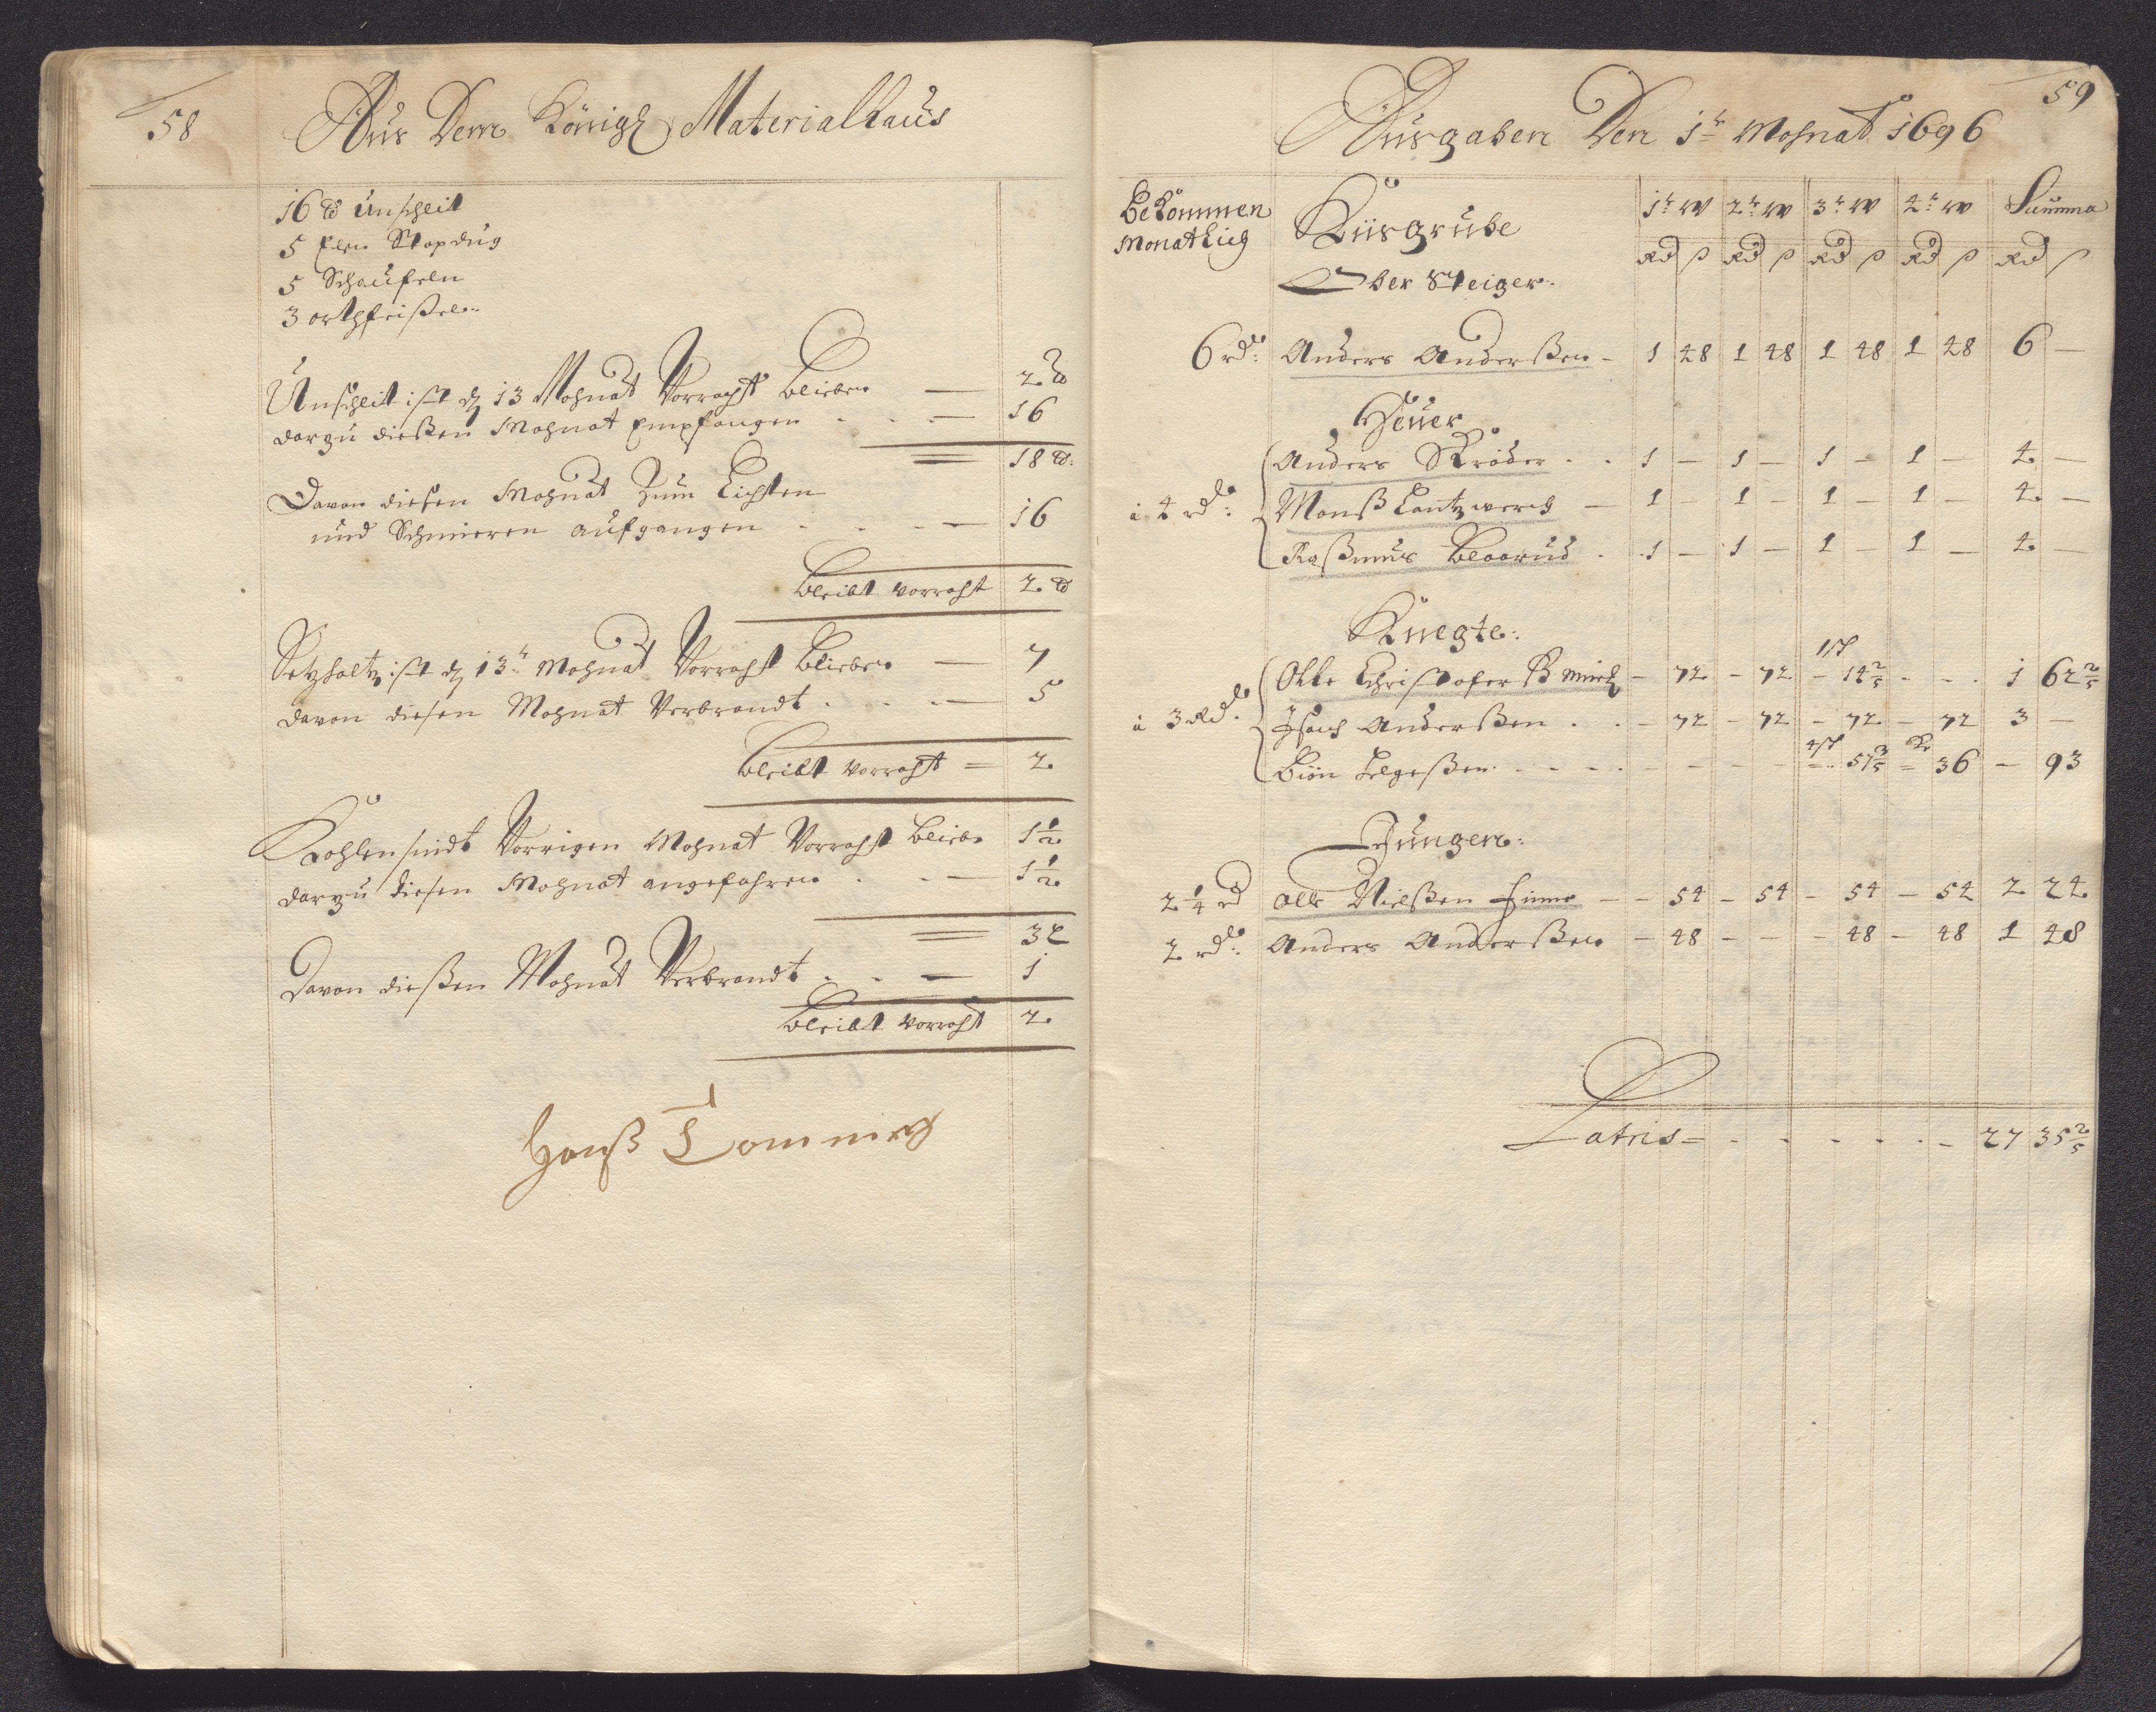 58
Aus Dem Königl Materialhaus
16 ℔ Unschleit
5 Elen Stopdug
5 Schaufeln
3 orthfeißel
Unschleit ist dz 13 Mohnat Vorraht blieben — 2 ℔
darzu dießen Mohnat Empfangen . . . — 16
18 ℔:
Davon diesen Mohnat Zum Lichten
und Schmieren aufgangen . . . — 16
bleibt vorraht 2 ℔
Setzholtz ist dz 13t Mohnat Vorraht blieben — 7
davon diesen Mohnat Verbrandt . . . — 5
bleibt vorraht = 2
Kohlen sindt Vorrigen Mohnat Vorraht blieben 1½
darzu diesen Mohnat angefahren . . — 1½
3 L
Davon dießen Mohnat Verbrandt . . — 1
bleibt vorraht 2
Hanß Tommes
59
Ausgaben Den 1t Mohnat 1696
Bekommen Monatlich
Kiisgrube
1t W 2t W 3t W 4t W Summa
Rd ß Rd ß Rd ß Rd ß Rd ß
Ober Steiger:
6 rd: Anders Anderßen - 1 48 1 48 1 48 1 48 6 —
Heuer
Anders Kröder . . 1 — 1 — 1 — 1 — 4 —
à 4 rd: Monß Lantzwerg — 1 — 1 — 1 — 1 — 4 —
Raßmus Blaarud . 1 — 1 — 1 — 1 — 4 —
Knegte:
Olle Christofer ß Mirch — 72 — 72 — 14 2/5 . . . 1 62 2/5
à 3 Rd: Isach Anderßen . . — 72 — 72 — 72 — 72 3 —
Biön Helgeßen . . . . — 57 3/5 — 36 — 93
Jungen:
2¼ rd Olle Nielßen Finne — — 54 — 54 — 54 — 54 2 24
2 rd: Anders Anderßen — 48 — — — 48 — 48 1 48
Latris = . . . . . . — 27 35 2/5